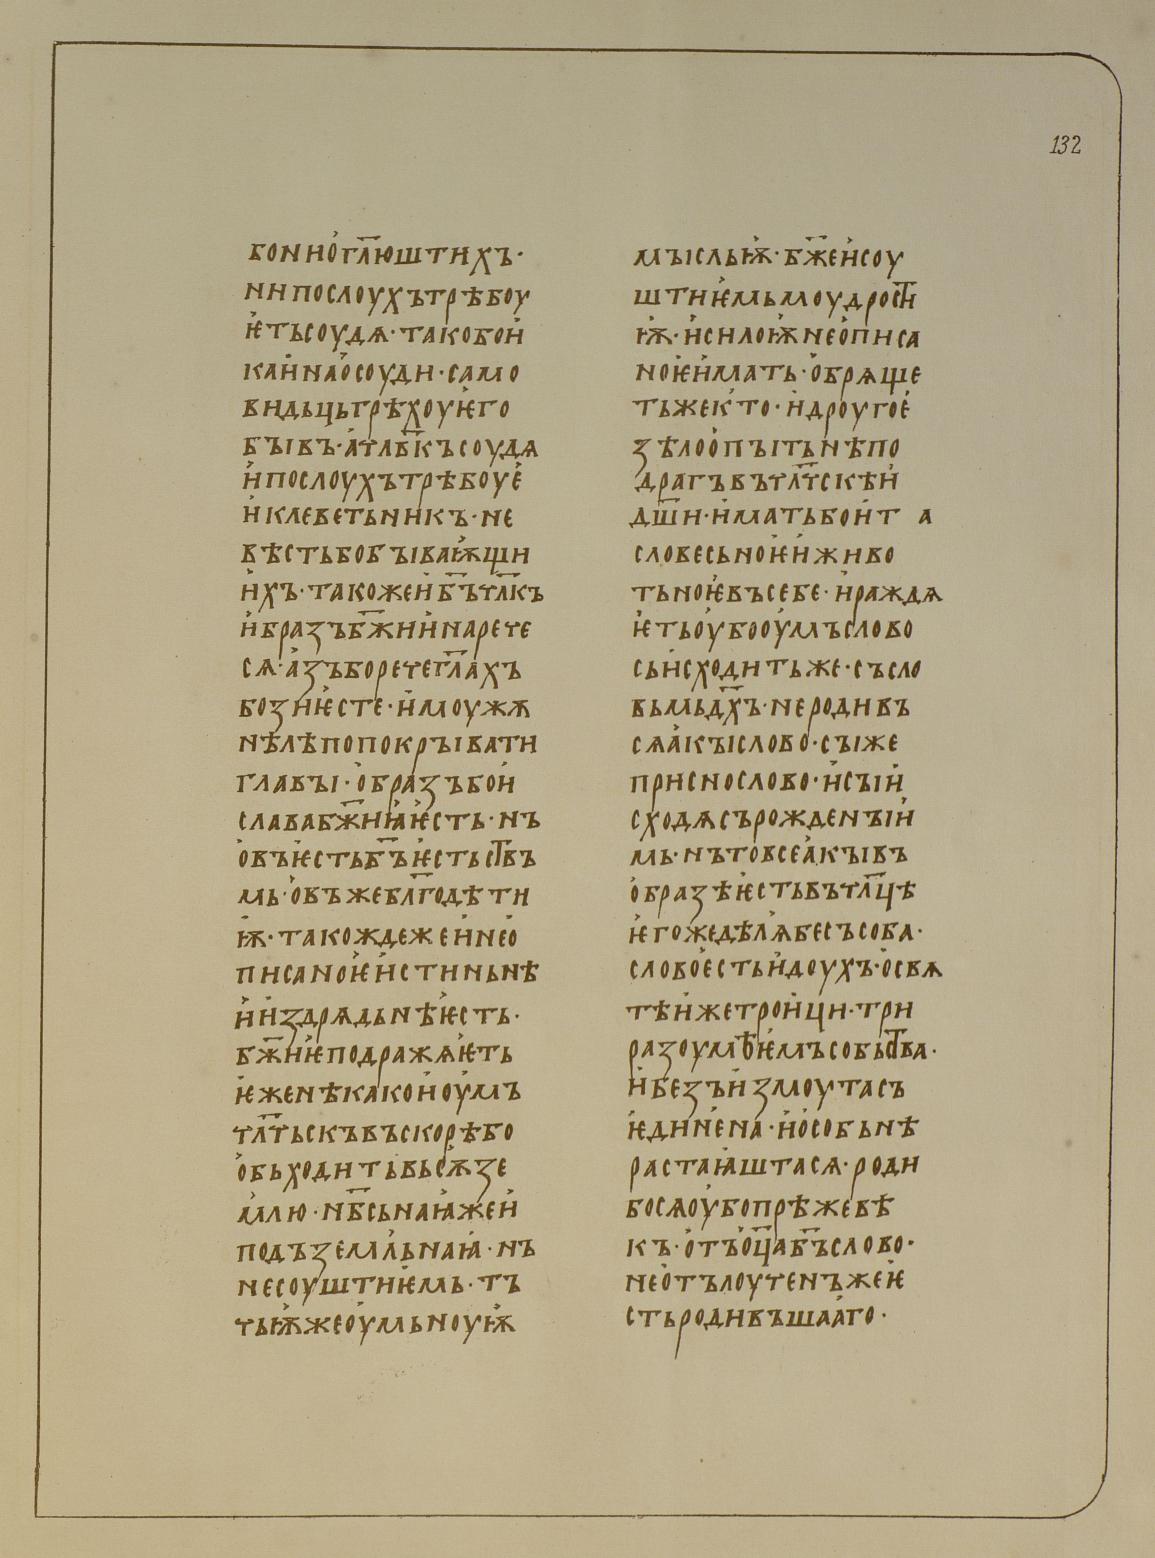 132
бо ни о гл҃юштиихъ·
ни послоухъ трѣбоу
ѥть соудѧ· тако бо и
каина осоуди· само
видьць грѣхоу ѥго
бывъ· а҆ чл҃вк҃ъ соудѧ
и послоухъ трѣбоуе
и клеветьникъ· не
вѣсть бо бываѭщи
ихъ· такоже и б҃ъ чл҃къ
и бразъ бж҃ии нарече
сѧ· азъ бо рече гл҃ахъ
бози ѥсте· и моужѧ
нѣ лѣпо покрывати
главы· образъ бо и
слава бж҃иꙗ ѥсть· нъ
овъ ѥсть б҃ъ ѥстьств҃ъ
мь· овъ же благ҃одѣти
ѭ· такожде же и нео
писаноѥ истиньнѣ
и издрѧдьнѣ ѥсть·
бж҃иѥ подражѧѥть
ѥже нѣкако и оумъ
чл҃чьскъ въскорѣ бо
обьходить вьсѫ зе
млю· нб҃сьнаꙗ же и
подъземльнаꙗ· нъ
не соуштиѥмь· тъ
чьѭ же оумьноуѭ
мысльѭ· бж҃е и соу
штиѥмь моудрост҃и
ѭ· и силоѭ неописа
ноѥ имать· обрѧще
ть же кто· и дроугоѥ
зѣло опыть нѣ по
драгъ въ чл҃чскѣи
дш҃и· имать бо и т а
словесьноѥ и живо
тьноѥ въ себе· и раждѧ
ѥть оубо оумъ слово
сь исходить же· съ сло
вьмь дх҃ъ· не родивъ
сѧ акы слово· сы же
присно слово· и сыи
сходѧ съ рожденыи
мь· нъ то все акы въ
образѣ ѥсть въ чл҃цѣ
ѥгоже дѣлѧ бес ъсоба·
слово есть и доухъ· о свѧ
тѣи же троици· три
разоумѣѥмъ собьст҃ва·
и безъ измоутасъ
ѥдинена· и особьнѣ
растаꙗштасѧ· роди
бо сѧ оубо прѣже вѣ
къ· отъ оц҃а б҃ъ слово·
не отълоученъ же ѥ
сть родивъшааго·